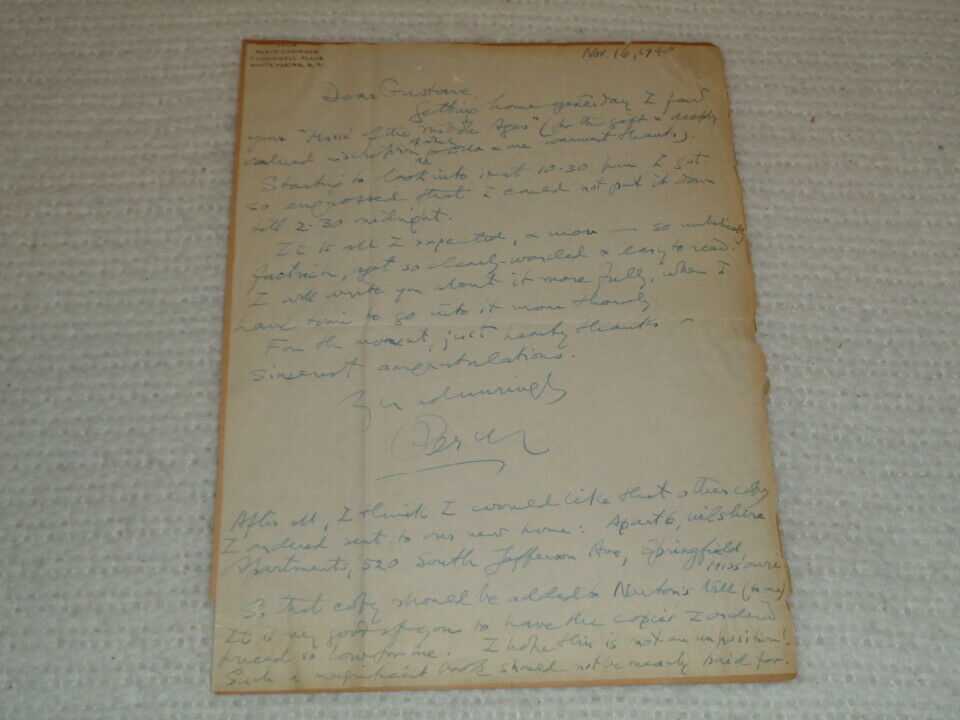 PERCY GRAINGER
7 CROMWELL PLACE
WHITE PLAINS, N. Y.
Nov. 16, 1940
Dear Gustave
Getting home yesterday I found
your "Music of the Middle Ages" (for the gift & deeply
valued inscription of which & me warmest thanks).
Starting to look into it at 10.30 pm I got
so engrossed that I could not put it down
till 2.30 midnight.
It is all I expected, & more — so unbelievably
fact-rich, yet so clearly-worded & easy to read.
I will write you about it more fully, when I
have time to go into it more thoroly.
For the moment, just hearty thanks &
sincerest congratulations.
Yrs admiringly
Percy
After all, I think I would like that other copy
I ordered sent to our new home: Apart 6, Wilshire
Apartments, 520 South Jefferson Ave, Springfield,
Missouri.
So that copy should be added to Norton's bill (to me)
It is very good of you to have the copies I ordered
priced so low for me. I hope this is not an imposition!
Such a magnificent book should not be meanly paid for.